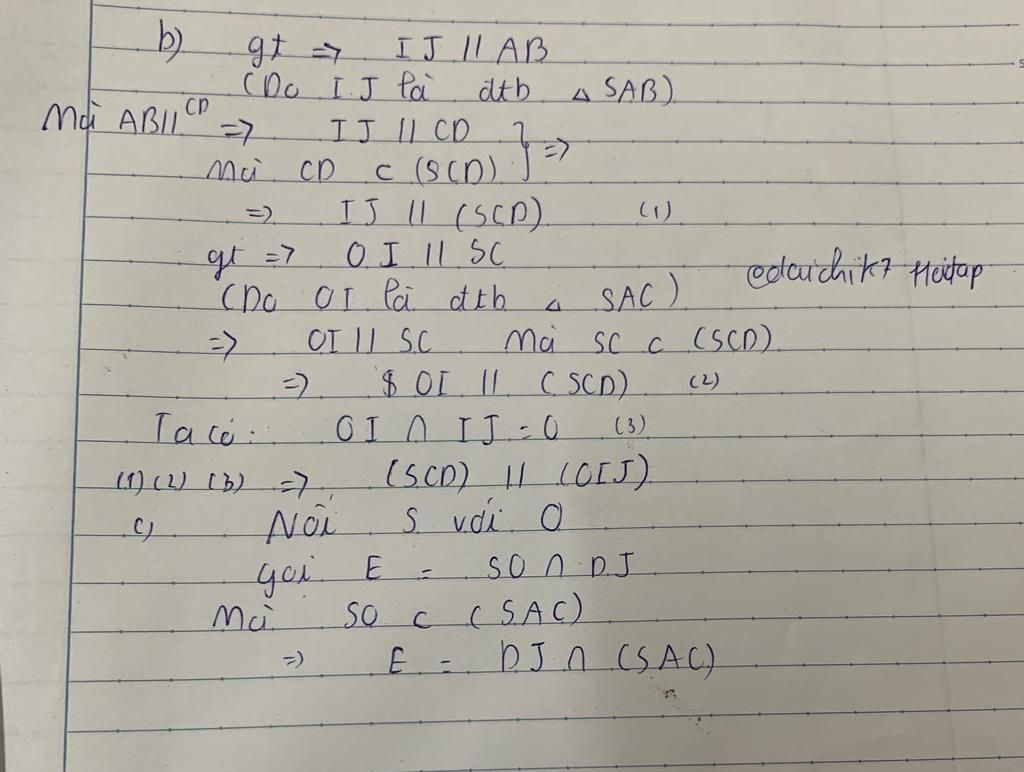 b) gt => IJ // AB
(Do IJ là đtb △ SAB)
Mà AB // CD => IJ // CD } =>
Mà CD ⊂ (SCD)
=> IJ // (SCD) (1)
gt => OI // SC
(Do OI là đtb △ SAC)
=> OI // SC Mà SC ⊂ (SCD)
=> OI // (SCD) (2)
Ta có: OI ∩ IJ = O (3)
(1) (2) (3) => (SCD) // (OIJ)
c) Nối S với O
gọi E = SO ∩ DJ
Mà SO ⊂ (SAC)
=> E = DJ ∩ (SAC)